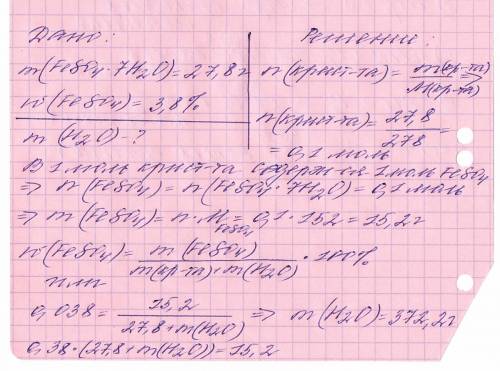 Дано:
m(FeSO4·7H2O)=27,8г
w(FeSO4)=3,8%
m(H2O)-?
Решение:
n(крист-та)=m(кр-та)/M(кр-та)⇒
n(крист-та)=27,8/278=
=0,1 моль
В 1 моль крист-та содержится 1 моль FeSO4
⇒ n(FeSO4)=n(FeSO4·7H2O)=0,1 моль
⇒ m(FeSO4)=n·M FeSO4=0,1·152=15,2г
w(FeSO4)=m(FeSO4)/m(кр-та)+m(H2O)·100%
или
0,038=15,2/27,8+m(H2O) ⇒ m(H2O)=372,2г
0,38·(27,8+m(H2O))=15,2